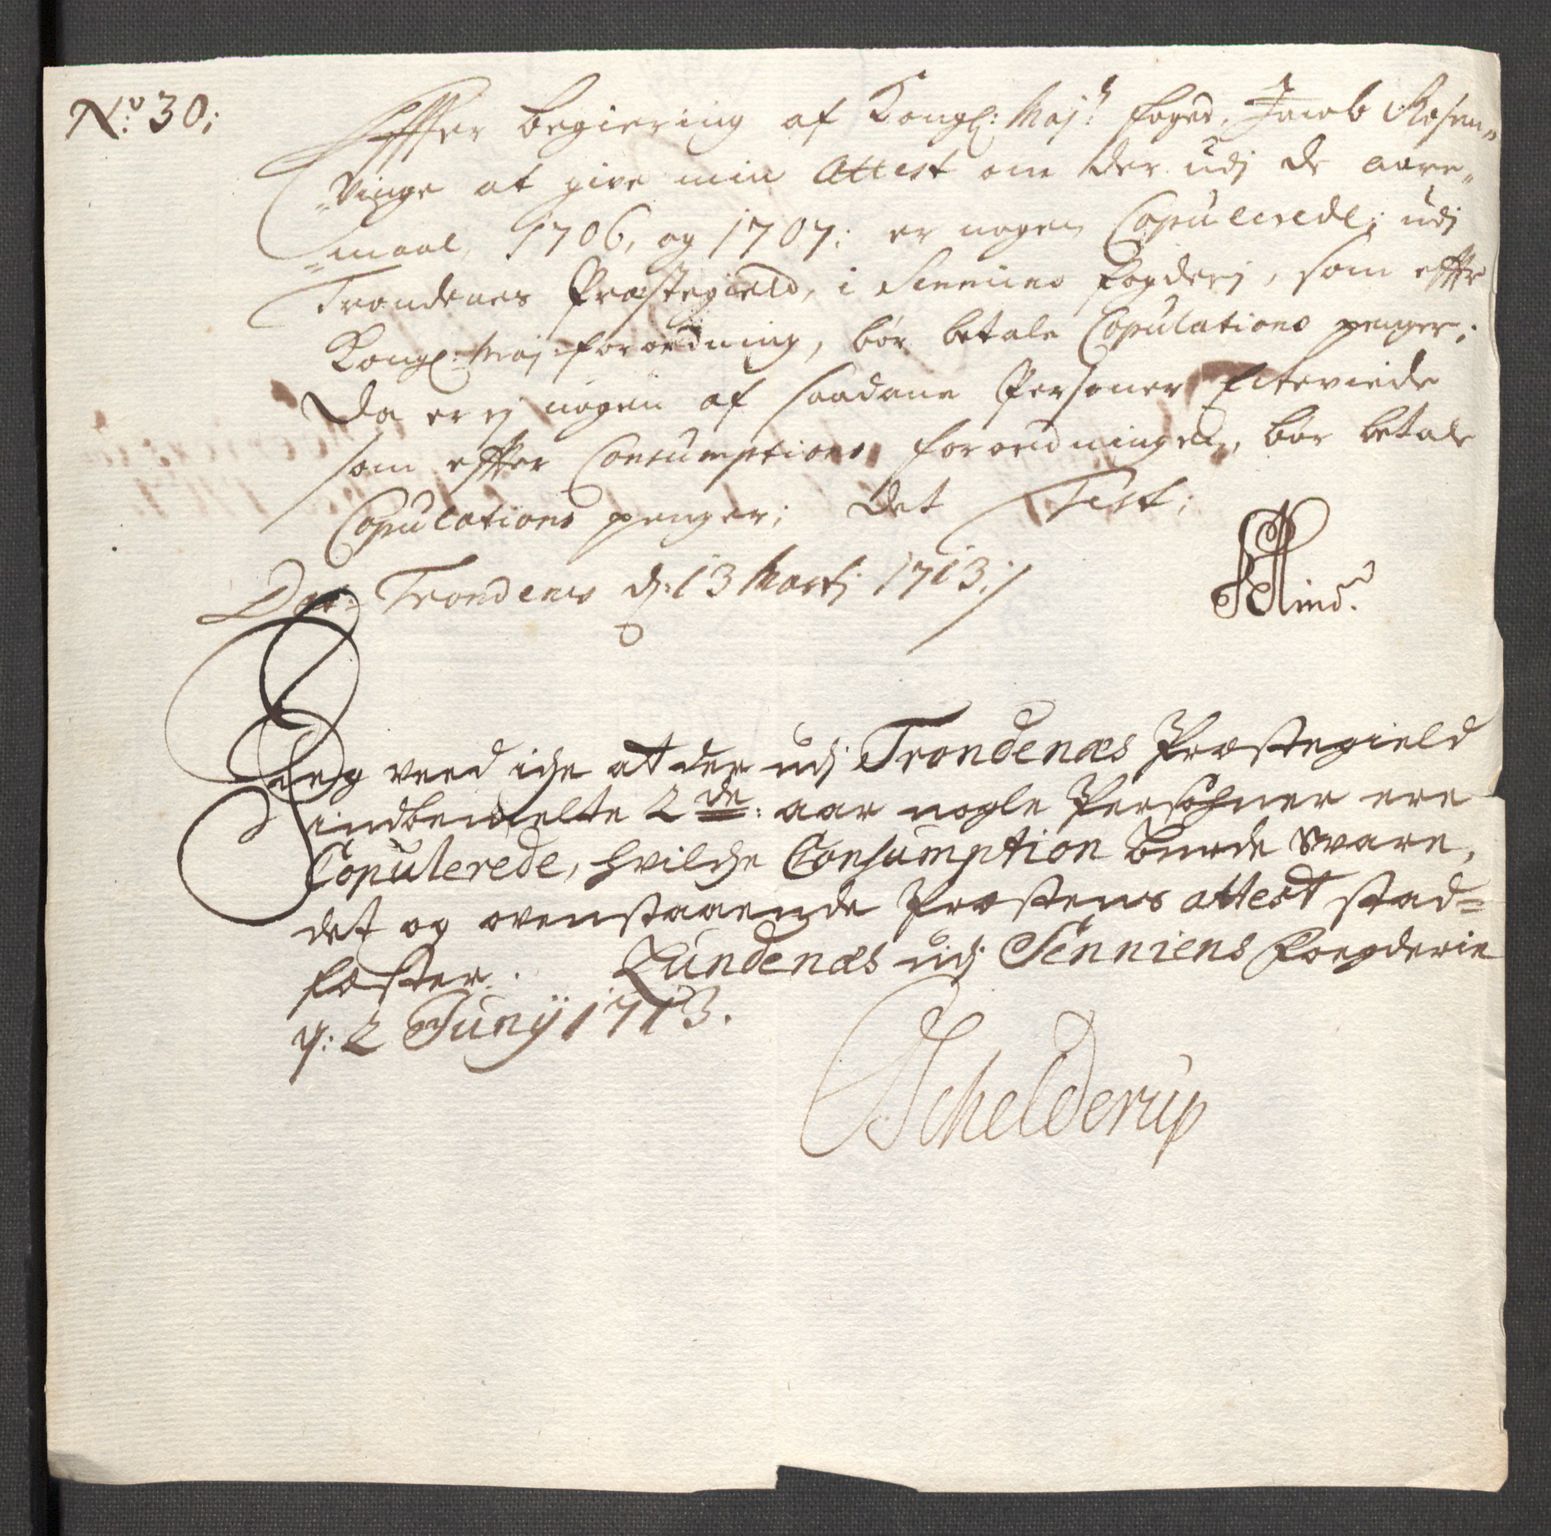 No: 30;
Effter begiering af Kongl: Maj:ts foged, Jacob Rosen-
-Vinge at give min Attest om der udj de aare-
-maal, 1706, og 1707: er nogen Copulerede; udj
Trondenes Præstegield, i Senniens fogderj, som effter
Kongl: Maj: forordning, bør betale Copulations penger;
Da er ej nogen af saadane Personer Ecteviede
som effter Consumptions forordningen, bør betale
Copulations penger; Det Test;
Dat: Trondenes d: 13 Martj 1713:/
Hind.
Jeg veed iche at der udj Trondenæs Præstegield
indbemelte 2de: aar nogle Persohner ere
Copulerede, hvilche Consumption burde svare,
det og ovenstaaende Præstens attest stad-
fæster. Lundenæs udj Senniens Foegderie
d: 2 Junij 1713.
Schelderup